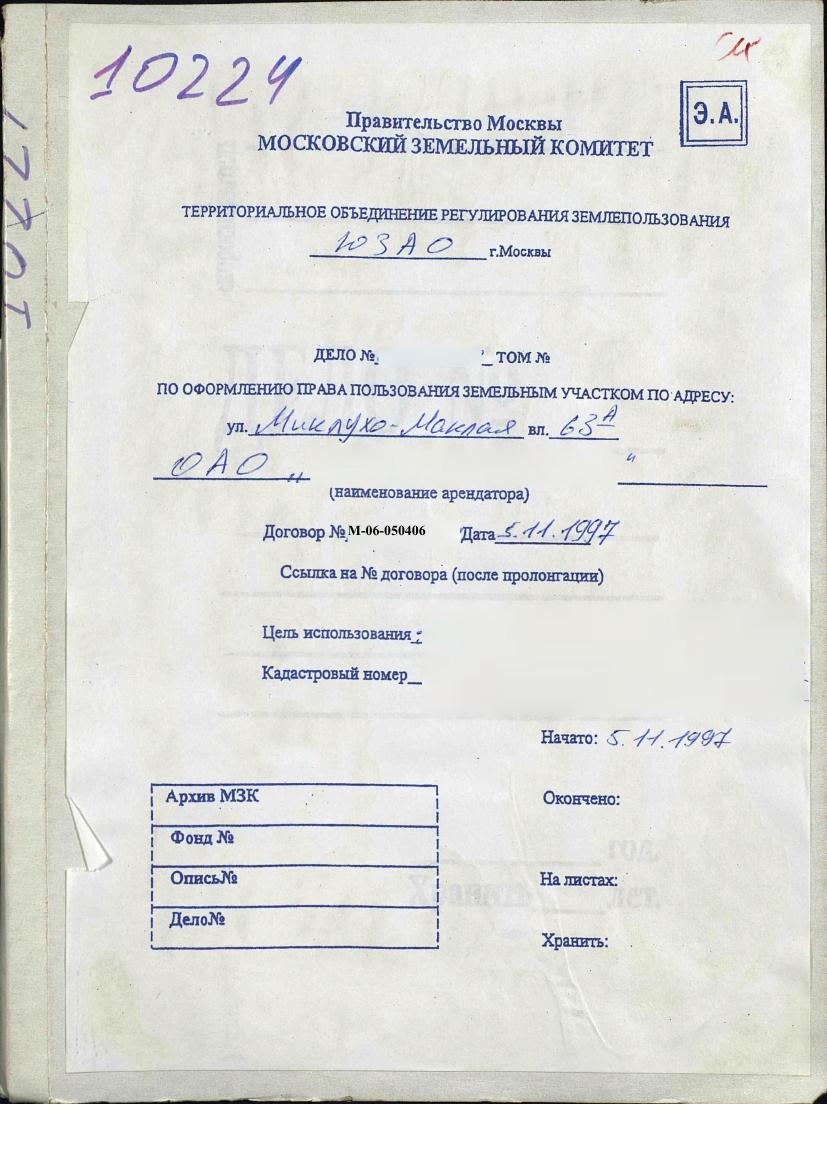 10224
Э.А.
Правительство Москвы
МОСКОВСКИЙ ЗЕМЕЛЬНЫЙ КОМИТЕТ
ТЕРРИТОРИАЛЬНОЕ ОБЪЕДИНЕНИЕ РЕГУЛИРОВАНИЯ ЗЕМЛЕПОЛЬЗОВАНИЯ
ЮЗАО г.Москвы
ДЕЛО № ТОМ №
ПО ОФОРМЛЕНИЮ ПРАВА ПОЛЬЗОВАНИЯ ЗЕМЕЛЬНЫМ УЧАСТКОМ ПО АДРЕСУ:
ул. Миклухо-Маклая вл. 63А
ОАО " "
(наименование арендатора)
Договор № М-06-050406 Дата 5.11.1997
Ссылка на № договора (после пролонгации)
Цель использования:
Кадастровый номер
Начато: 5.11.1997
Архив МЗК
Окончено:
Фонд №
Опись№
На листах:
Дело№
Хранить: